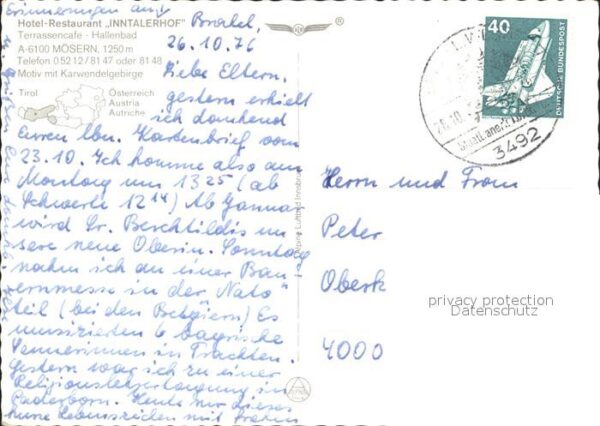 Erinnerungen aus
Hotel-Restaurant „INNTALERHOF"
Terrassencafe - Hallenbad
A-6100 MÖSERN, 1250 m
Telefon 0 52 12 / 81 47 oder 81 48
Motiv mit Karwendelgebirge
Tirol
Österreich
Austria
Autriche
Brakel,
26.10.76
Liebe Eltern,
gestern erhielt
ich dankend
Euren lbn. Kartenbrief vom
23.10. Ich komme also am
Montag um 13 25 (ab
Schwerte 12 14) Ab Januar
wird Sr. Berchtildis un
sere neue Oberin. Sonntag
nahm ich an einer Bau-
ernmesse in der "Nato"
teil (bei den Belgiern) Es
musizierten 6 bayrische
Sennerinnen in Trachten.
Gestern war ich zu einer
Religionslehrertagung in
Paderborn. Heute nur dieses
kurze Lebenszeichen mit
Alpine Luftbild Innsbruck
®
40
DEUTSCHE BUNDESPOST
26.10.
Staatl. anerk.
3492
Herrn und Frau
Peter
Oberk
4000
privacy protection
Datenschutz